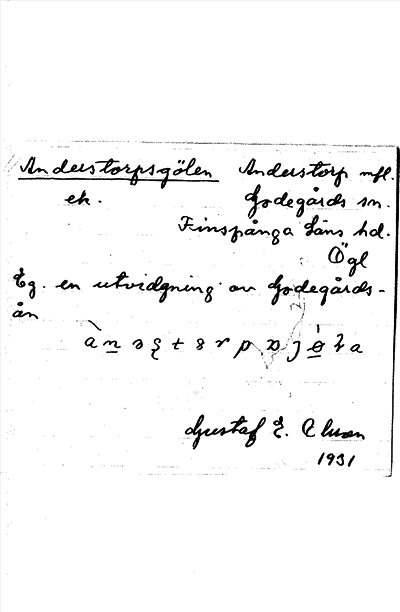 Anderstorpsgölen Anderstorp mfl.
ek. Godegårds sn.
Finspånga läns hd.
Ögl
Eg. en utvidgning av Godegårds-
ån
Gustaf E.
1931